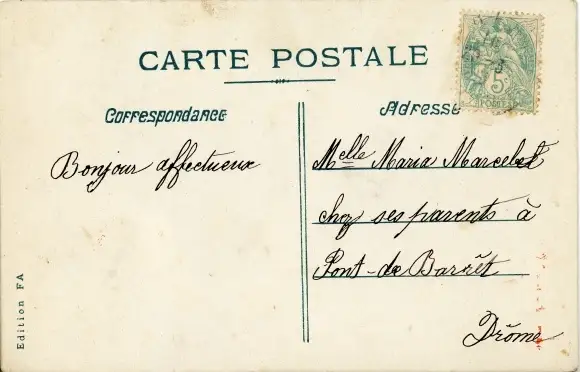 CARTE POSTALE
Correspondance
Adresse
5
POSTES
Bonjour affectueux
Melle Maria Marcelet
chez ses parents à
Pont-de Barrêt
Drôme
Edition FA